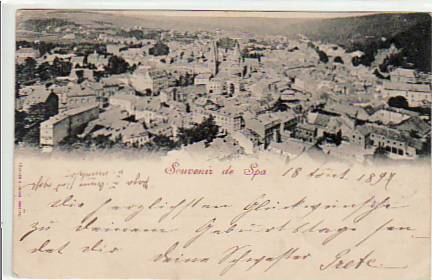 Souvenir de Spa 18 août 1897
Die herzlichsten Glückwünsche
zu deinem Geburtstage sen-
det dir deine Schwester Grete.